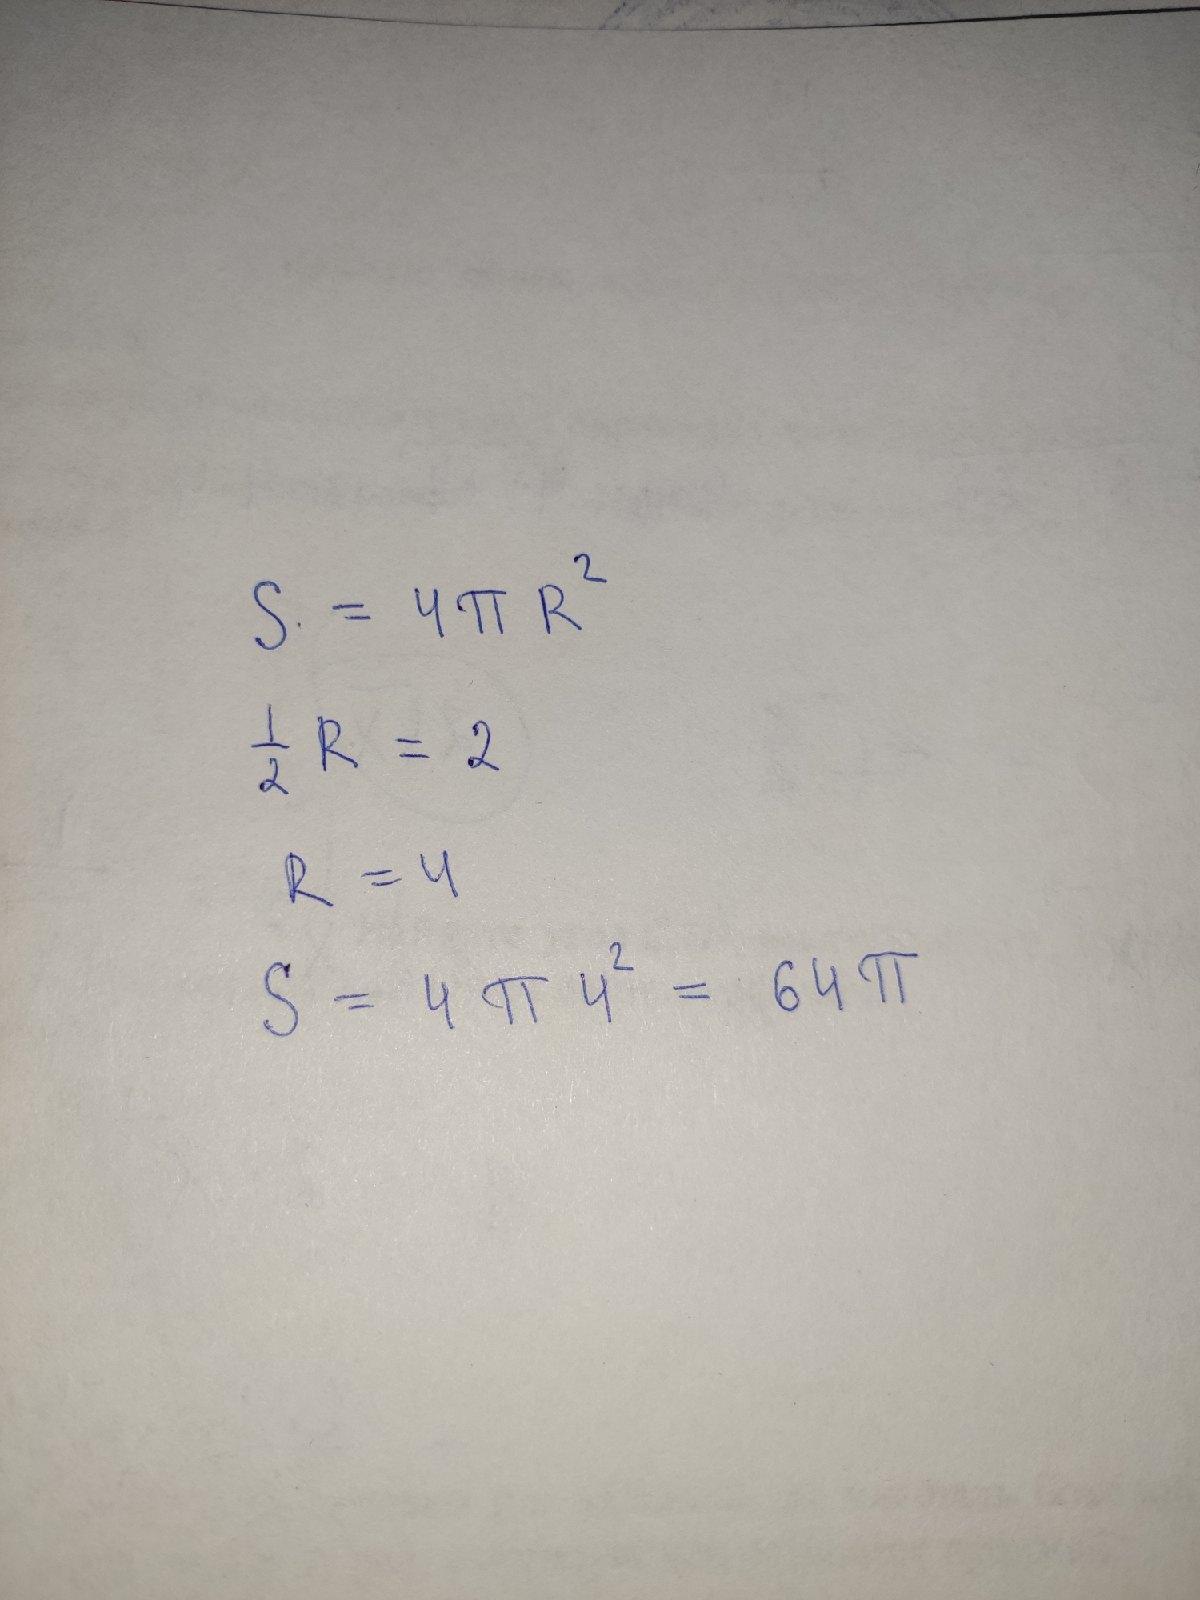 S = 4π R²
1/2 R = 2
R = 4
S = 4 π 4² = 64π